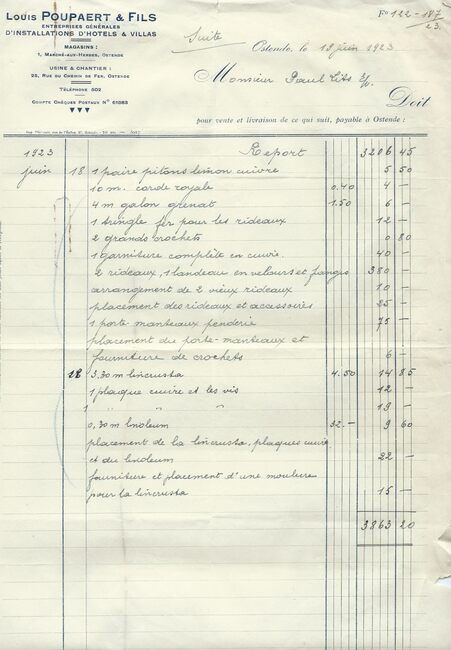 LOUIS POUPAERT & FILS
ENTREPRISES GÉNÉRALES
D'INSTALLATIONS D'HOTELS & VILLAS
MAGASINS :
1, MARCHÉ-AUX-HERBES, OSTENDE
USINE & CHANTIER :
25, RUE DU CHEMIN DE FER, OSTENDE
TÉLÉPHONE 502
COMPTE CHÈQUES POSTAUX N° 61583
Fo 122-187
23.
Suite
Ostende, le 18 juin 1923
Monsieur Paul
Doit
pour vente et livraison de ce qui suit, payable à Ostende :
1923 Report 3206 45
juin 18 1 paire pitons limon cuivre 5 50
10 m. corde royale 0.40 4 —
4 m galon grenat 1.50 6 —
1 tringle fer pour les rideaux 12 —
2 grands crochets 0 80
1 garniture complète en cuivre. 40 —
2 rideaux, 1 bandeau en velours et franges 380 —
arrangement de 2 vieux rideaux 10 —
placement des rideaux et accessoires 25 —
1 porte-manteaux penderie 75 —
placement du porte-manteaux et
fourniture de crochets 6 —
18 3.30 m lincrusta 4.50 14 85
1 plaque cuivre et les vis 12 —
1 " " " 19 —
0,30 m linoleum 32.— 9 60
placement de la lincrusta, plaques cuivre
et du linoleum 22 —
fourniture et placement d'une moulure
pour la lincrusta 15 —
3863 20